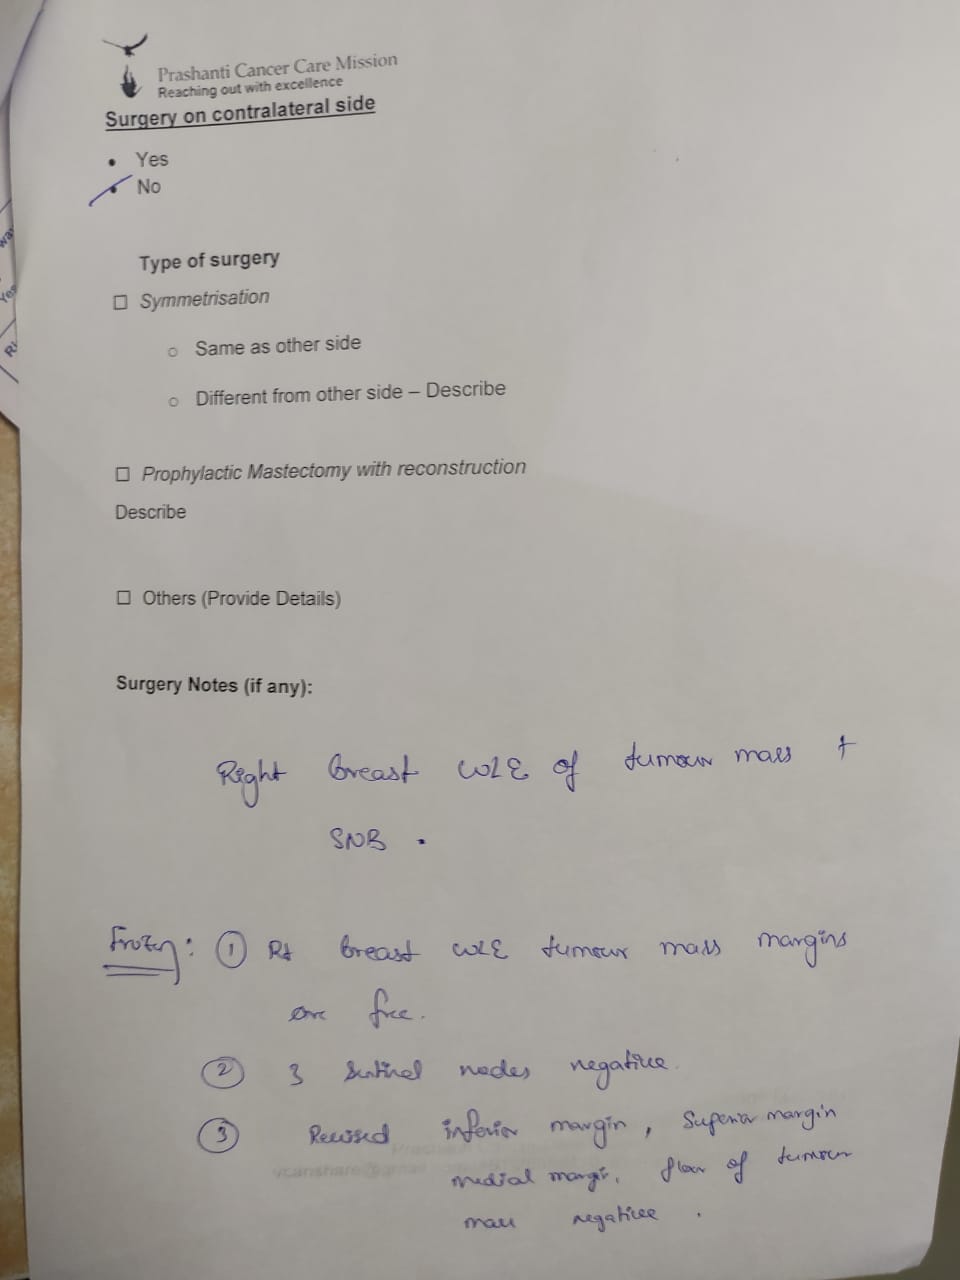 Prashanti Cancer Care Mission
Reaching out with excellence
Surgery on contralateral side
• Yes
• No
Type of surgery
☐ Symmetrisation
○ Same as other side
○ Different from other side – Describe
☐ Prophylactic Mastectomy with reconstruction
Describe
☐ Others (Provide Details)
Surgery Notes (if any):
Right breast WLE of tumour mass +
SNB .
Frozen: ① Rt breast WLE tumour mass margins
are free.
② 3 Sentinel nodes negative.
③ Revised inferior margin, Superior margin
medial margin, floor of tumour
mass negative .
Yes